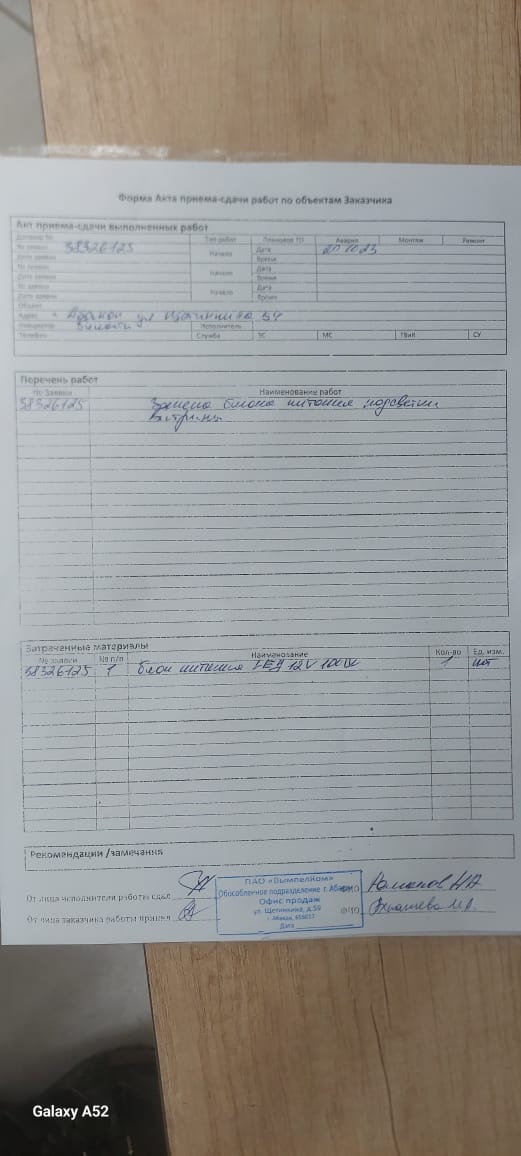 Форма Акта приема-сдачи работ по объектам Заказчика
Акт приема-сдачи выполненных работ
Тип работ Плановое ТО Авария Монтаж Ремонт
№ заявки 58326125 Начало Дата
Дата заявки Время
№ заявки Начало Дата
Дата заявки Время
№ заявки Начало Дата
Дата заявки Время
Объект
Адрес г Абакан ул Щетинкина 59
Исполнитель
Телефон Служба ЭС МС ТВиК СУ
Перечень работ
№ Заявки Наименование работ
58326125 Замена блока питания подсветки
витрины
Затраченные материалы
№ заявки № п/п Наименование Кол-во Ед. изм.
58326125 1 блок питания LED 12V 100W 1 шт
Рекомендации /замечания
От лица исполнителя работы сдал
ПАО «ВымпелКом»
Обособленное подразделение г. Абакан
Офис продаж
ул. Щетинкина, д.59
г. Абакан, 655017
Дата
ФИО
От лица заказчика работы принял
ФИО
Galaxy A52